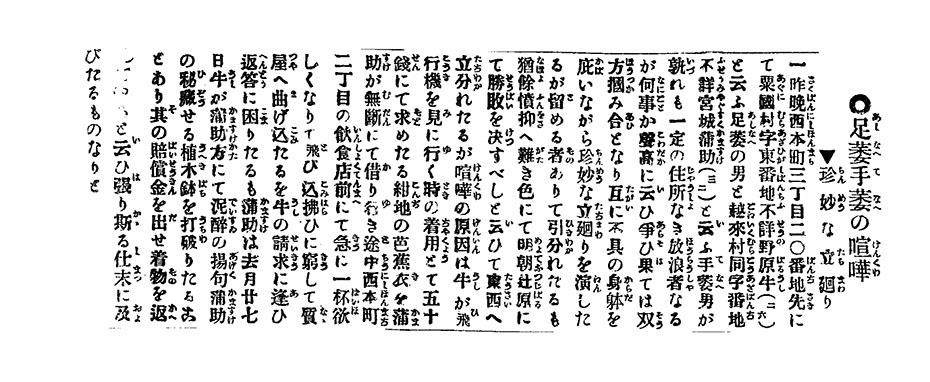 ◯足萎手萎の喧嘩
▼珍妙な立廻り
一昨晩西本町三丁目二〇番地先に
て粟國村字東番地不詳野原牛(二六)
と云ふ足萎の男と越來村同字番地
不詳宮城蒲助(三二)と云ふ手萎男が
孰れも一定の住所なき放浪者なる
が何事か聲高に云ひ爭ひ果ては双
方摑み合となり互に不具の身躰を
庇いながら珍妙な立廻りを演した
るが留める者ありて引分れたるも
猶餘憤抑へ難き色にて明朝辻原に
て勝敗を決すべしと云ひて東西へ
立分れたるが喧嘩の原因は牛が飛
行機を見に行く時の着用とて五十
錢にて求めたる紺地の芭蕉衣を蒲
助が無斷にて借り行き途中西本町
二丁目の飲食店前にて急に一杯欲
しくなりて飛び込拂ひに窮して質
屋へ曲げ込たるを牛の請求に逢ひ
返答に困りたるも蒲助は去月廿七
日牛が蒲助方にて泥醉の揚句蒲助
の秘藏せる植木鉢を打破りたる
とあり其の賠償金を出せ着物を返
と云ひ張り斯る仕末に及
びたるものなりと